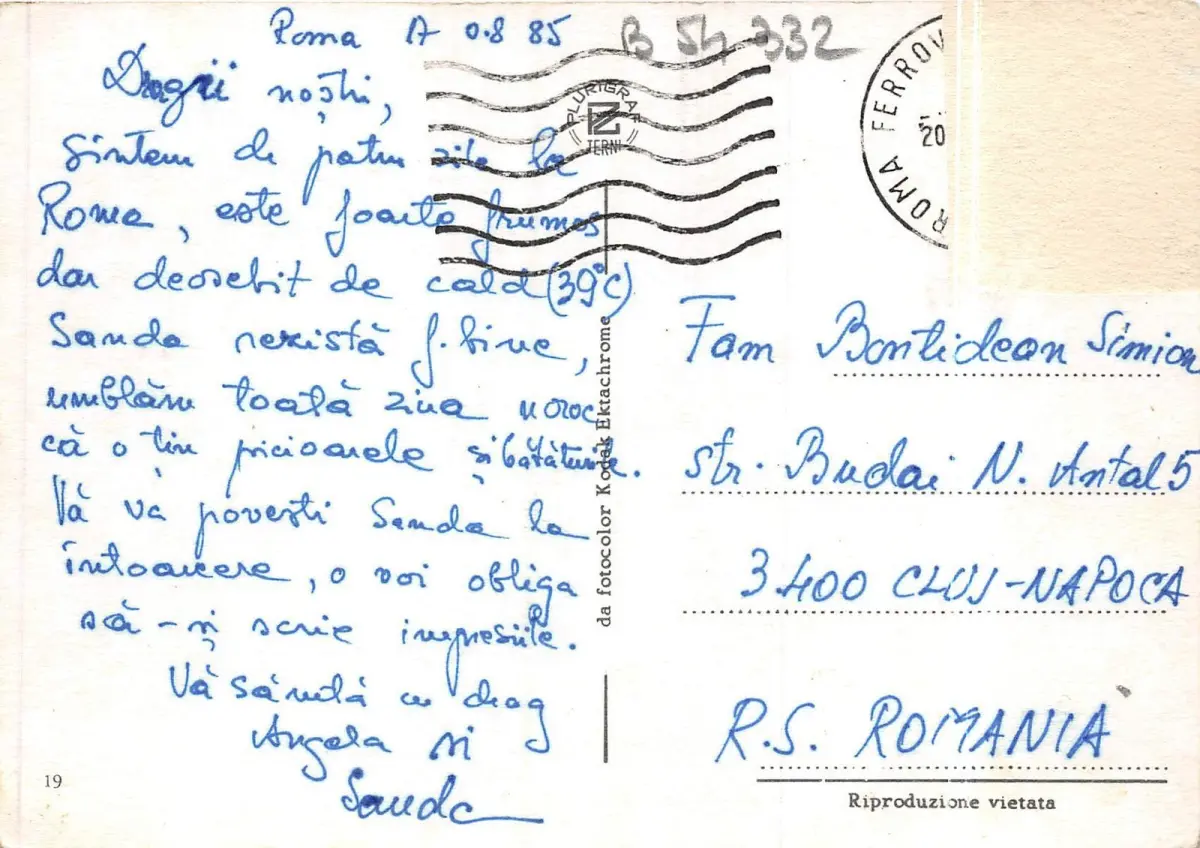 Roma 17 08 85
B 54 332
Dragii noștri,
Sintem de patru zile la
Roma, este foarte frumos
dar deosebit de cald (39°C)
Sanda rezistă f. bine,
umblăm toată ziua noroc
că o țin picioarele și bătăturile.
Vă va povesti Sanda la
întoarcere, o voi obliga
să-și scrie impresiile.
Vă sărută cu drag
Angela și
Sanda
19
PLURIGRAF
TERNI
da fotocolor Kodak Ektachrome
ROMA FERROV
20
Fam Bontidean Simion
str. Budai N. Antal 5
3400 CLUJ-NAPOCA
R.S. ROMANIA
Riproduzione vietata